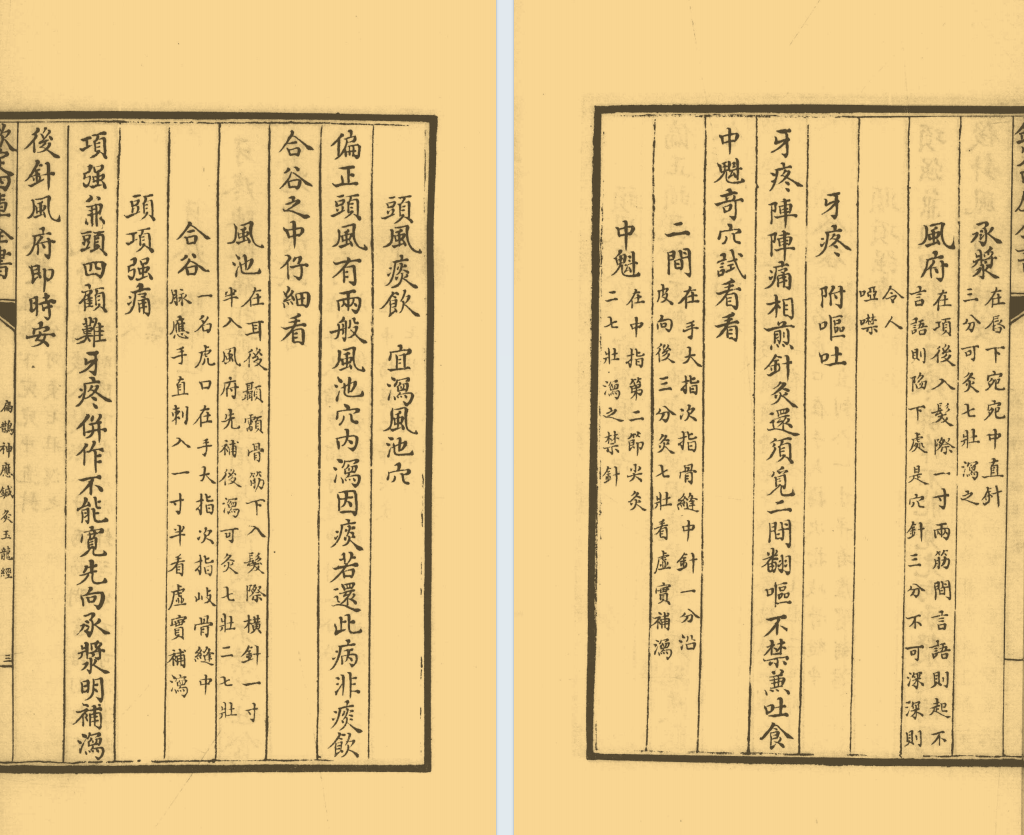 頭風痰飲 宜瀉風池穴
偏正頭風有兩般風池穴内瀉因痰若還此病非痰飲
合谷之中仔細看
風池 在耳後顳顬骨筋下入髮際橫針一寸
半入風府先補後瀉可灸七壯二七壯
合谷 一名虎口在手大指次指岐骨縫中
脉應手直刺入一寸半看虛實補瀉
頭項强痛
項强兼頭四顧難牙疼併作不能寛先向承漿明補瀉
後針風府即時安
欽定四庫全書
扁鵲神應鍼灸玉龍經
三
承漿 在唇下宛宛中直針
三分可灸七壯瀉之
風府 在項後入髮際一寸兩筋間言語則起不
言語則陷下處是穴針三分不可深深則
令人
啞噤
牙疼 附嘔吐
牙疼陣陣痛相煎針灸還須覓二間翻嘔不禁兼吐食
中魁竒穴試看看
二間 在手大指次指骨縫中針一分沿
皮向後三分灸七壯看虛實補瀉
中魁 在中指第二節尖灸
二七壯瀉之禁針